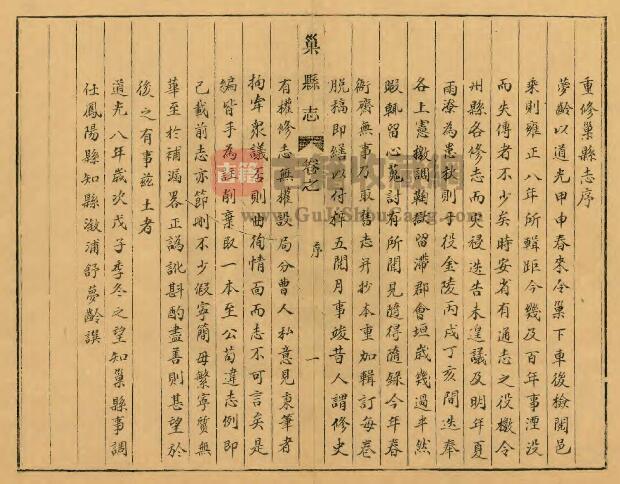 重修巢縣志序
夢齡以道光甲申春來令巢下車後檢閱邑
乘則雍正八年所輯距今幾及百年事湮没
而失傳者不少矣時安省有通志之役檄令
州縣各修志而夾浸迭告未遑議及明年夏
雨潦為患秋則于役金陵丙戌丁亥間迭奉
各上憲檄調鞫獄留滯郡會垣歲幾過半然
暇輒留心蒐討有所聞見隨得隨錄今年春
衙齋無事乃取舊志并抄本重加輯訂每卷
脱稿即繕以付梓五閱月事竣昔人謂修史
有權修志無權設局分曹人私意見秉筆者
拘牽衆議否則曲徇情面而志不可言矣是
編皆手為筆削棄取一本至公苟違志例即
已載前志亦節刪不少假寧簡毋繁寧質無
華至於補漏畧正譌訛斟酌盡善則甚望於
後之有事兹土者
道光八年歲次戊子季冬之望知巢縣事調
任鳳陽縣知縣溆浦舒夢齡譔
巢縣志
卷之
序
一
古籍
古籍收藏網
www.GuJiShouCang.com